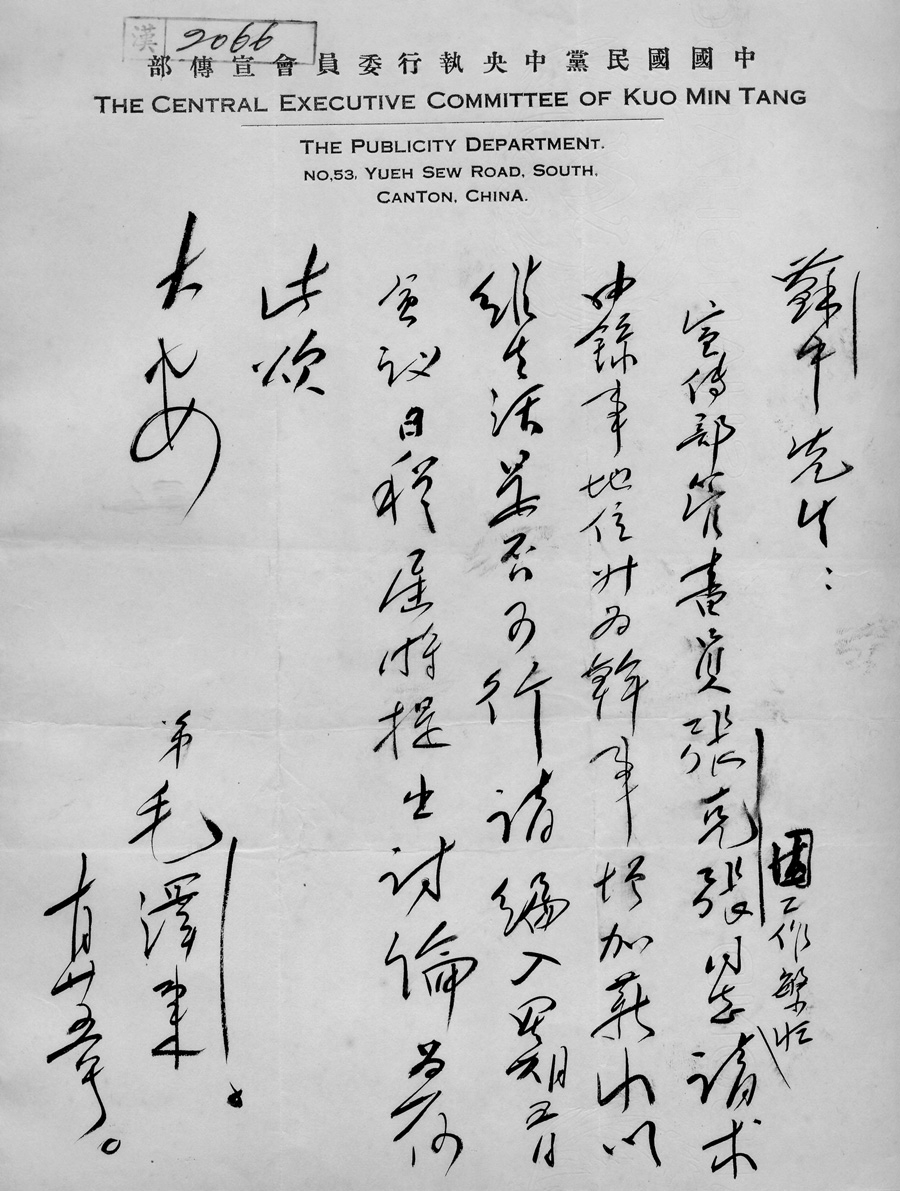 漢 2066
中國國民黨中央執行委員會宣傳部
THE CENTRAL EXECUTIVE COMMITTEE OF KUO MIN TANG
THE PUBLICITY DEPARTMENT.
NO,53, YUEH SEW ROAD, SOUTH,
CANTON, CHINA.
中先生：
宣傳部管書員張克張同志因工作繁忙請求
由錄事地位升为幹事增加薪水以
維生活是否可行請編入五日
會議日程屆時提出討論为荷
此頌
大安
弟毛澤東
十月廿五号。